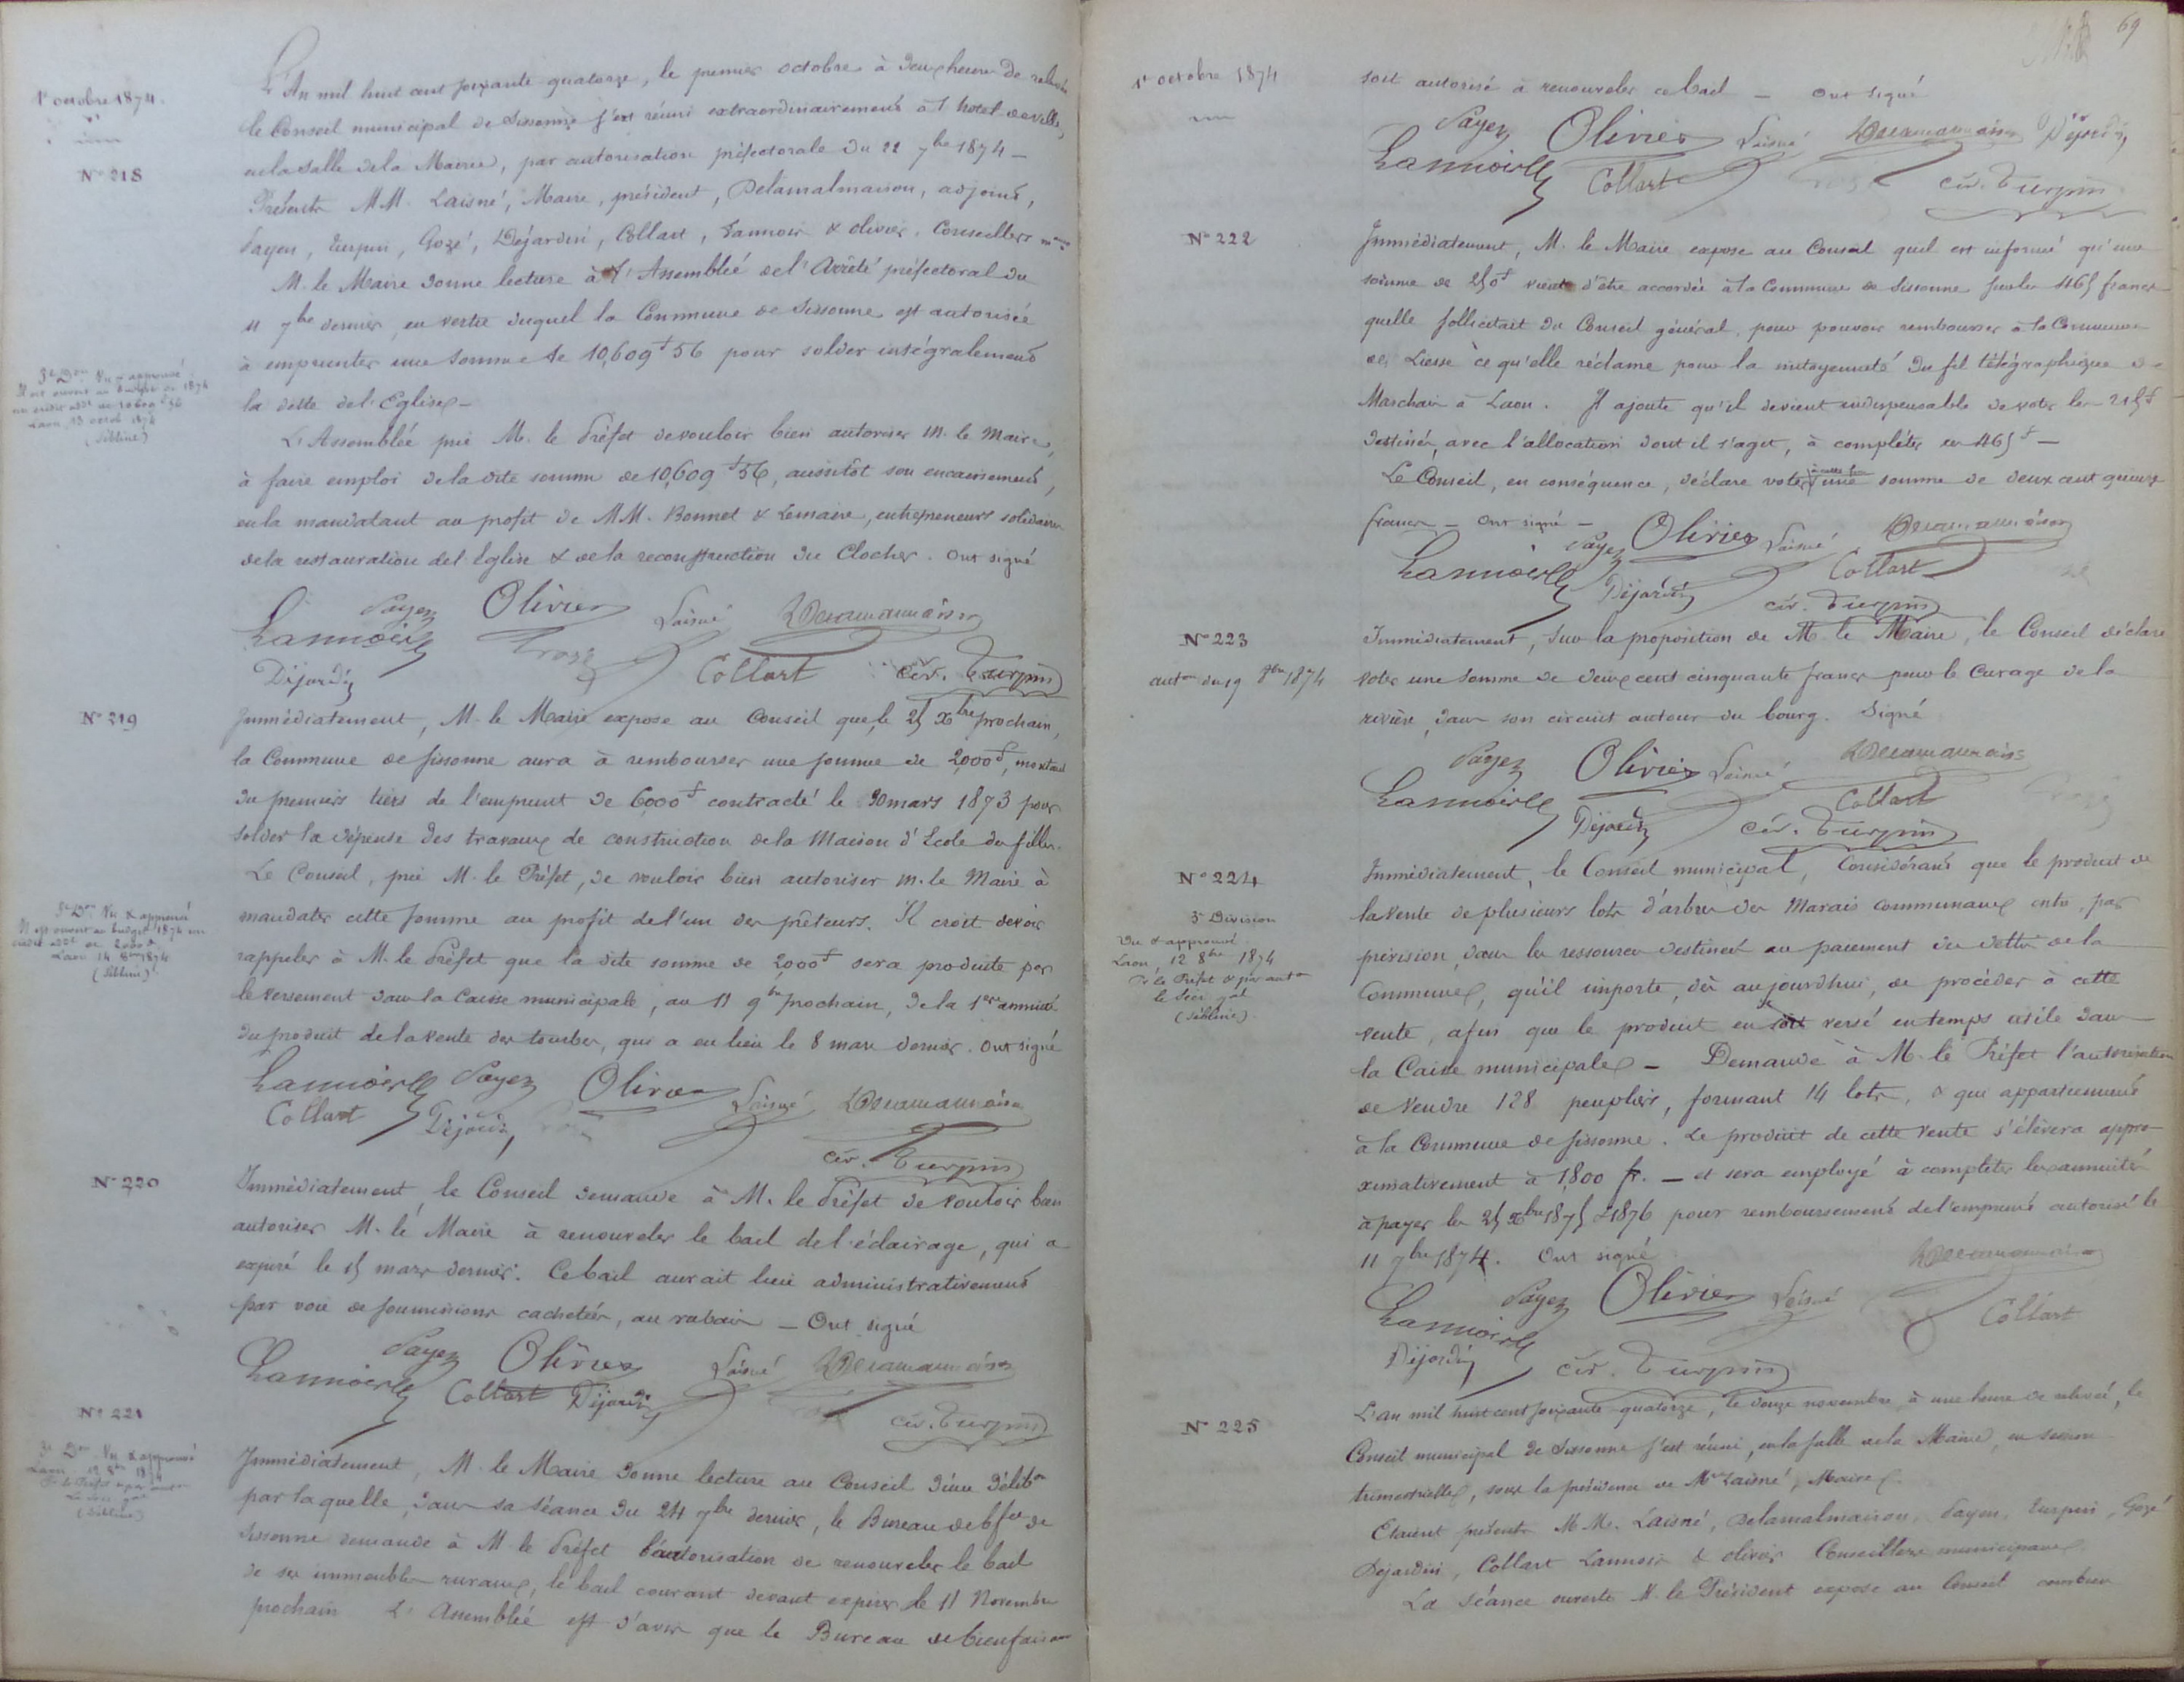 1er octobre 1874.
N° 218
L'An mil huit cent soixante quatorze, le premier octobre à deux heures de relevée
le Conseil municipal de Sissonne s'est réuni extraordinairement à l'hotel de ville,
en la salle de la Mairie, par autorisation préfectorale du 22 7bre 1874 —
Présents MM. Laisné, Maire, président, Delamalmaison, adjoint,
Payen, Turpin, Gozé, Dejardin, Collart, Lannois & Olivier, Conseillers maux
M. le Maire donne lecture à l'Assemblée de l'Arrêté préfectoral du
11 7bre dernier, en vertu duquel la Commune de Sissonne est autorisée
à emprunter une somme de 10,609f56 pour solder intégralement
la dette de l'Eglise —
3e Don Vu & approuvé
Il est ouvert au budget de 1874
un crédit addl de 10609f56
Laon, 13 octob 1874
(Sébline)
L'Assemblée prie M. le Préfet de vouloir bien autoriser M. le Maire,
à faire emploi de la dite somme de 10,609f56, aussitôt son encaissement,
en la mandatant au profit de MM. Bonnet & Lemaire, entrepreneurs solidaires
de la restauration de l'Eglise & de la reconstruction du Clocher. Ont signé
Payen Olivier Laisné Delamalmaison
Lannois Gozé
Dejardin Collart Cér. Turpin
N° 219
Immédiatement, M. le Maire expose au Conseil que, le 25 Xbre prochain,
la Commune de Sissonne aura à rembourser une somme de 2,000f, montant
du premier tiers de l'emprunt de 6,000f contracté le 30 mars 1873 pour
solder la dépense des travaux de construction de la Maison d'Ecole des filles.
Le Conseil, prie M. le Préfet, de vouloir bien autoriser M. le Maire à
mandater cette somme au profit de l'un des prêteurs. Il croit devoir
rappeler à M. le Préfet que la dite somme de 2,000f sera produite par
le versement dans la Caisse municipale, au 11 9bre prochain, de la 1ere annuité
du produit de la vente des tourbes, qui a eu lieu le 8 mars dernier. Ont signé
3e Don Vu & approuvé
Il est ouvert au budget 1874 un
crédit addl de 2000f
Laon 14 8bre 1874
(Sébline)
Lannois Payen Olivier Laisné Delamalmaison
Collart Dejardin
Cér. Turpin
N° 220
Immédiatement, le Conseil demande à M. le Préfet de vouloir bien
autoriser M. le Maire à renouveler le bail de l'éclairage, qui a
expiré le 15 mars dernier. Ce bail aurait lieu administrativement
par voie de soumissions cachetées, au rabais — Ont signé
Payen Olivier Laisné Delamalmaison
Lannois Collart Dejardin
Cér. Turpin
N° 221
3e Don Vu & approuvé
Laon 12 8bre 1874
Pr le Préfet & par auton
Le Secr. gal
(Sébline)
Immédiatement, M. le Maire donne lecture au Conseil d'une Délibon
par laquelle, dans sa séance du 24 7bre dernier, le Bureau de bfce de
Sissonne demande à M. le Préfet l'autorisation de renouveler le bail
de ses immeubles ruraux, le bail courant devant expirer le 11 Novembre
prochain L'Assemblée est d'avis que le Bureau de bienfaisance
69
1er octobre 1874
soit autorisé à renouveler ce bail — Ont signé
Payen Olivier Laisné Delamalmaison Dejardin
Lannois Collart Cér. Turpin
N° 222
Immédiatement, M. le Maire expose au Conseil qu'il est informé qu'une
somme de 250f vient d'être accordée à la Commune de Sissonne sur les 465 francs
qu'elle sollicitait du Conseil général, pour pouvoir rembourser à la Commune
de Liesse ce qu'elle réclame pour la mitoyenneté du fil télégraphique de
Marchais à Laon. Il ajoute qu'il devient indispensable de voter les 215f
destinés, avec l'allocation dont il s'agit, à compléter ces 465f —
Le Conseil, en conséquence, déclare voter à cette fin une somme de deux cent quinze
francs — Ont signé —
Payen Olivier Laisné Delamalmaison
Lannois Dejardin Collart
Cér. Turpin
N° 223
auton du 19 8bre 1874
Immédiatement, sur la proposition de M. le Maire, le Conseil déclare
voter une somme de deux cent cinquante francs pour le Curage de la
rivière, dans son circuit autour du bourg. Signé
Payen Olivier Laisné Delamalmaison
Lannois Collart
Dejardin Cér. Turpin
N° 224
3e Division
Vu & approuvé
Laon, 12 8bre 1874
Pr le Préfet & par auton
le Secr. gal
(Sébline)
Immédiatement, le Conseil municipal, Considérant que le produit de
la vente de plusieurs lots d'arbres des Marais communaux entre, par
prévision, dans les ressources destinées au paiement des dettes de la
Commune, qu'il importe, dès aujourd'hui, de procéder à cette
vente, afin que le produit en soit versé en temps utile dans
la Caisse municipale — Demande à M. le Préfet l'autorisation
de vendre 128 peupliers, formant 14 lots, & qui appartiennent
à la Commune de Sissonne. Le produit de cette vente s'élèvera appro-
ximativement à 1,800 fr. — et sera employé à compléter les annuités
à payer les 25 Xbre 1875 & 1876 pour remboursement de l'emprunt autorisé le
11 7bre 1874. Ont signé
Payen Olivier Laisné Delamalmaison
Lannois Collart
Dejardin Cér. Turpin
N° 225
L'an mil huit cent soixante quatorze, le douze novembre, à une heure de relevée, le
Conseil municipal de Sissonne s'est réuni, en la salle de la Mairie, en session
trimestrielle, sous la présidence de Mr Laisné, Maire.
Etaient présents MM. Laisné, Delamalmaison, Payen, Turpin, Gozé
Dejardin, Collart Lannois & Olivier Conseillers municipaux.
La Séance ouverte M. le Président expose au Conseil combien